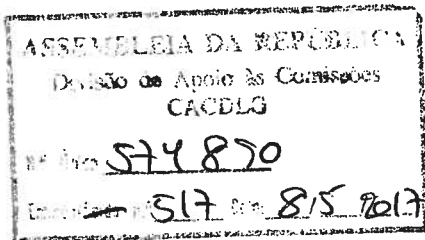 ASSEMBLEIA DA REPÚBLICA
Divisão de Apoio às Comissões
CACDLG
Nº Único 574890
Entrada nº 517 8/5/2017